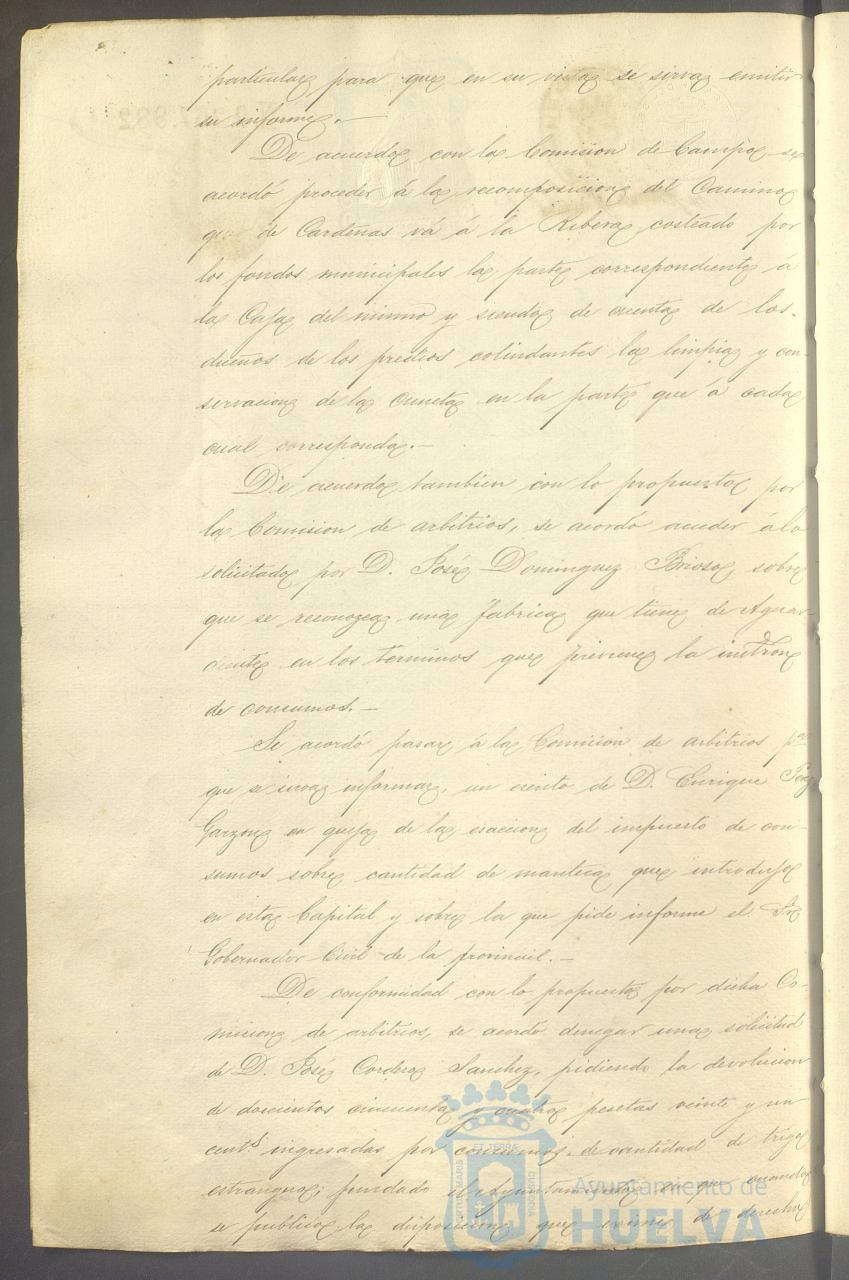 particular para que en su vista se sirva emitir
su informe.—
De acuerdo con la Comision de Campo se
acordó proceder á la recomposicion del Camino
que de Cardeñas vá á la Ribera costeado por
los fondos municipales la parte correspondiente á
la Caja del mismo y siendo de cuenta de los
dueños de los predios colindantes la limpia y con-
servacion de la Cuneta en la parte que á cada
cual corresponda.—
De acuerdo tambien con lo propuesto por
la Comision de arbitrios, se acordó acceder á lo
solicitado por D. José Dominguez Brioso, sobre
que se reconozca una fabrica que tiene de Aguar-
diente en los terminos que previene la instron
de consumos.—
Se acordó pasar á la Comision de arbitrios pa
que se sirva informar, un escrito de D. Enrique
Garzon en queja de la esaccion del impuesto de con-
sumos sobre cantidad de manteca que introdujo
en esta Capital y sobre la que pide informe el Sr
Gobernador Civil de la provincia.—
De conformidad con lo propuesto por dicha Co-
mision de arbitrios, se acordó denegar una solicitud
de D. José Cordero Sanchez, pidiendo la devolucion
de doscientos cincuenta y cuatro pesetas veinte y un
cents ingresadas por consumos de cantidad de trigo
estrangero; fundado el Ayuntamiento en que cuando
se publicó la disposicion que de derecho
Ayuntamiento de
HUELVA